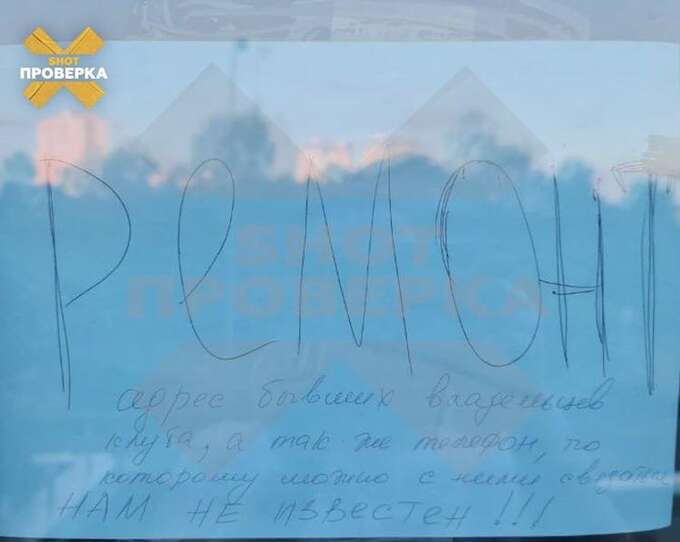 SHOT
ПРОВЕРКА
РеМОНТ
SHOT
ПРОВЕРКА
адрес бывших владельцев
клуба, а так же телефон, по
которому можно с ними связаться
НАМ НЕ ИЗВЕСТЕН !!!